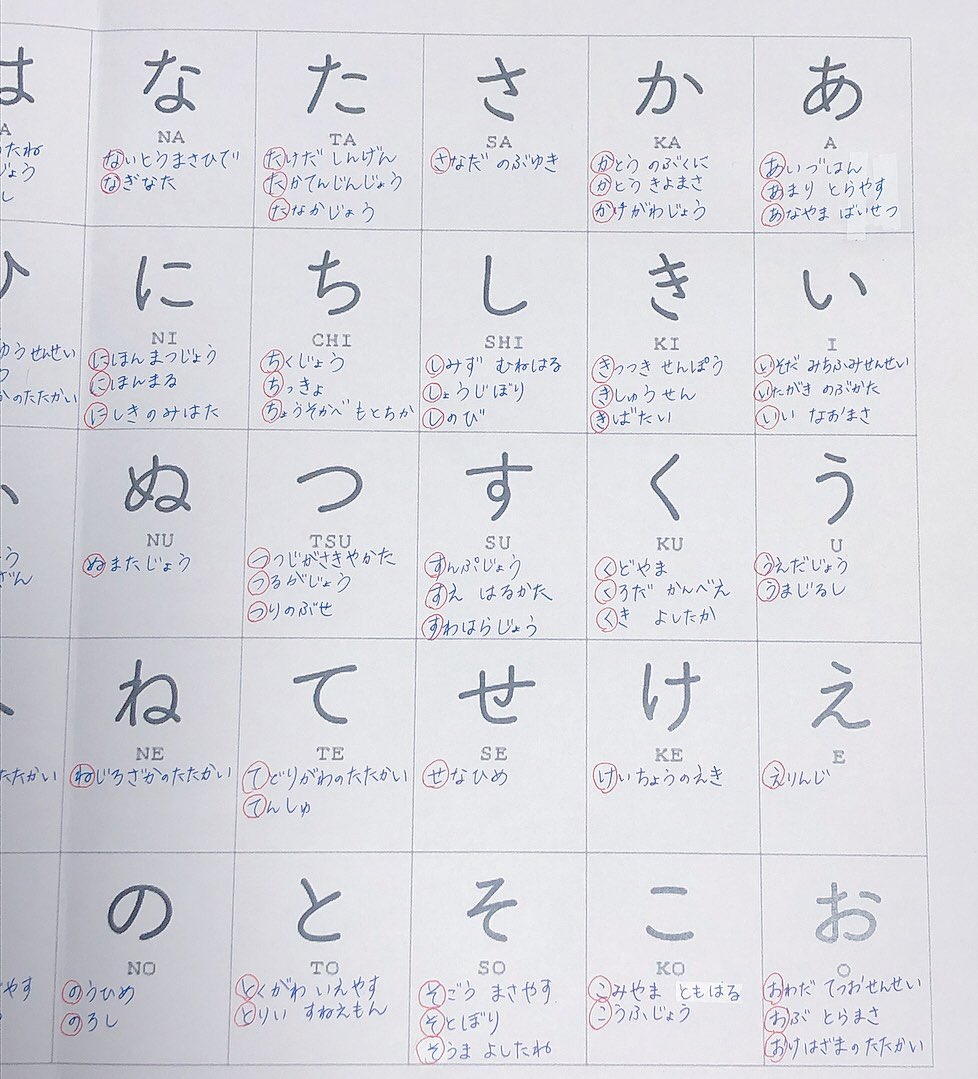 あ
A
あいづはん
あまり とらやす
あなやま ばいせつ
い
I
いそだ みちふみせんせい
いたがき のぶかた
いい なおまさ
う
U
うえだじょう
うまじるし
え
E
えりんじ
お
O
おわだ てつおせんせい
おぶ とらまさ
おけはざまのたたかい
か
KA
かとう のぶくに
かとう きよまさ
かけがわじょう
き
KI
きつつき せんぽう
きしゅうせん
きばたい
く
KU
くどやま
くろだ かんべえ
くき よしたか
け
KE
けいちょうのえき
こ
KO
こみやま ともはる
こうふじょう
さ
SA
さなだ のぶゆき
し
SHI
しみず むねはる
しょうじぼり
しのび
す
SU
すんぷじょう
すえ はるかた
すわはらじょう
せ
SE
せなひめ
そ
SO
そごう まさやす
そとぼり
そうま よしたね
た
TA
たけだ しんげん
たかてんじんじょう
たなかじょう
ち
CHI
ちくじょう
ちっきょ
ちょうそかべ もとちか
つ
TSU
つつじがさきやかた
つるがじょう
つりのぶせ
て
TE
てどりがわのたたかい
てんしゅ
と
TO
とくがわ いえやす
とりい すねえもん
な
NA
ないとうまさひで
なぎなた
に
NI
にほんまつじょう
にほんまる
にしきのみはた
ぬ
NU
ぬまたじょう
ね
NE
ねじろざかのたたかい
の
NO
のうひめ
のろし
は
A
たね
じょう
し
ひ
ゆうせんせい
のたたかい
う
ざん
たたかい
やす